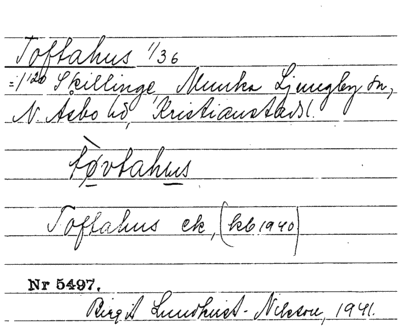 Toftahus 1/36
=1/20 Skillinge, Munka Ljungby sn,
N. Åsbo hd, Kristianstads l.
tøvtahus
Toftahus ek, (kb 1940)
Nr 5497.
Birgit Lundkvist-Nilsson, 1941.